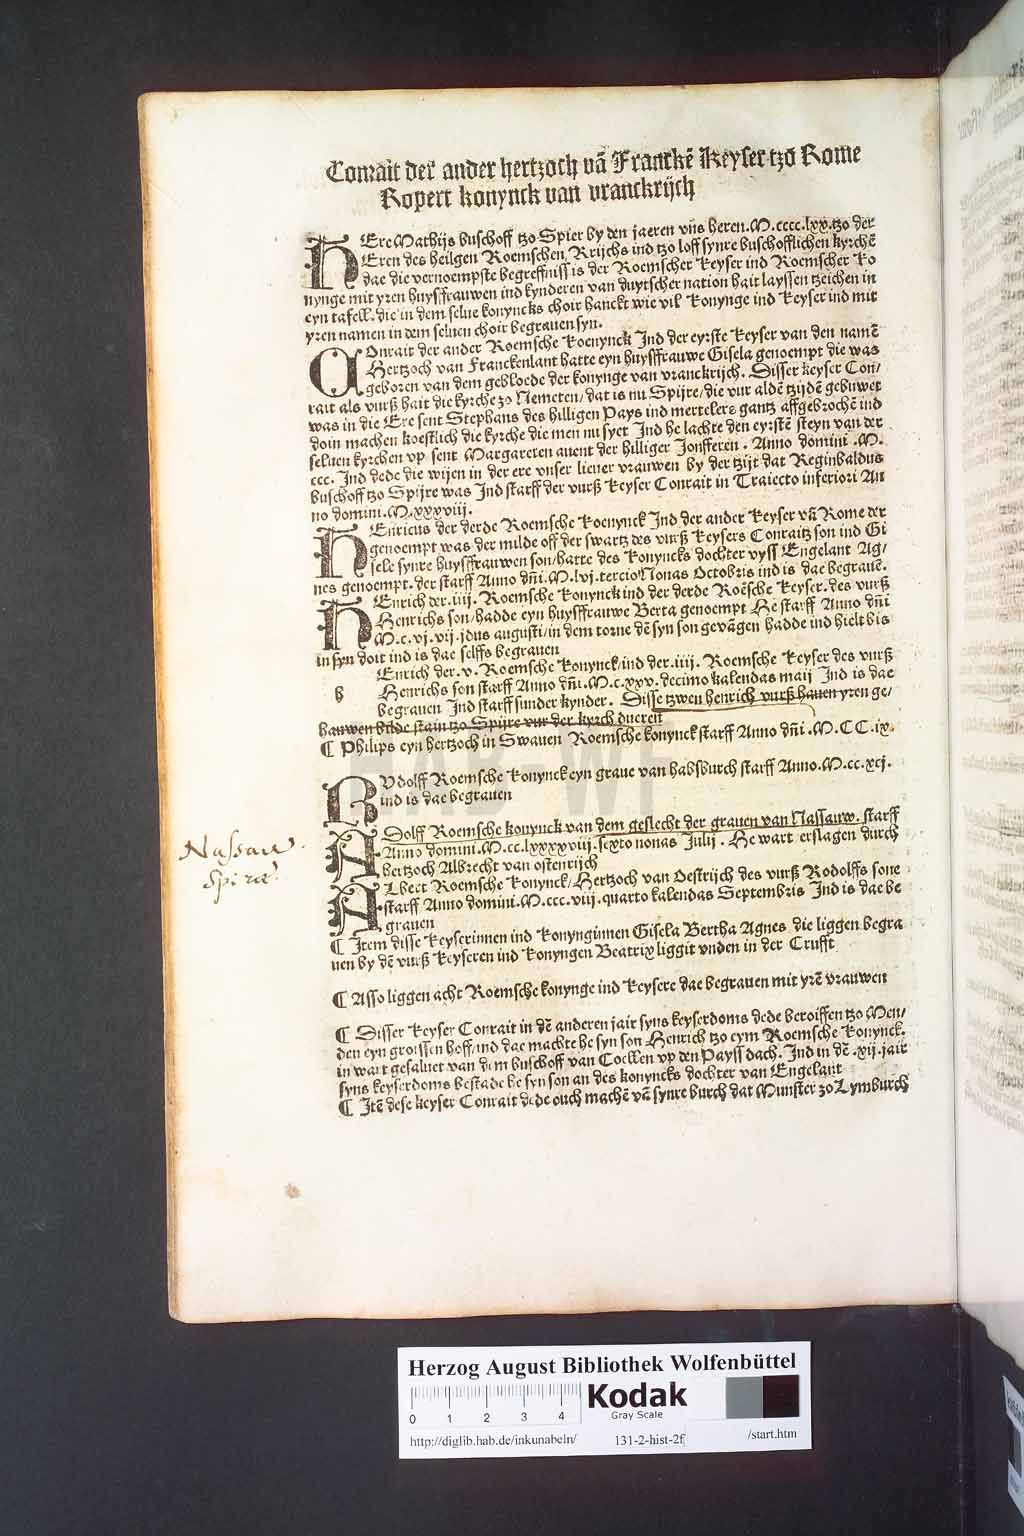 Conrait der ander hertzoch vā Franckē Keyser tzo Rome
Ropert konynck van vranckrijch
HEre Mathijs buschoff tzo Spier by den jaeren vns heren. M.cccc.lxx. tzo der
Eren des heilgen Roemschen Rrijchs ind tzo loff synre buschofflichen kyrchē
dae die vernoempste begreffniss is der Roemscher Keyser ind Roemscher Ko
nynge mit yren huysffrauwen ind kynderen van duytscher nation hait layssen tzeichen in
eyn tafell. die in dem selue konyncks choir hanckt wie vil Konynge ind Keyser ind mit
yren namen in dem seluen choir begrauen syn.
COnrait der ander Roemsche Koenynck Ind der eyrste Keyser van den namē
Hertzoch van Franckenlant hatte eyn huysffrauwe Gisela genoempt die was
geboren van dem gebloede der konynge van vranckrijch. Disser keyser Con/
rait als vurß hait die kyrche zo Nemeten/ dat is nu Spijre/ die vur aldē tzijdē gebuwet
was in die Ere sent Stephans des hilligen Pays ind mertelers gantz affgebrochē ind
doin machen koestlich die kyrche die men nu syet Ind he lachte den eyrstē steyn van der
seluen kyrchen vp sent Margareten auent der hilliger Jonfferen. Anno domini .M.
ccc. Ind dede die wijen in der ere vnser lieuer vrauwen by der tzijt dat Reginbaldus
buschoff tzo Spijre was Ind starff der vurß Keyser Conrait in Traiecto inferiori An
no domini .M.xxxviij.
HEnricus der derde Roemsche Koenynck Ind der ander Keyser vā Rome der
genoempt was der milde off der swartz des vurß Keysers Conraitz son ind Gi
sele synre huysffrauwen son/ hatte des Konyncks dochter vyss Engelant Ag/
nes genoempt. der starff Anno dñi .M.lvj. tercio Nonas Octobris ind is dae begrauē.
HEnrich der .iiij. Roemsche Konynck ind der derde Roēsche Keyser. des vurß
Henrichs son/ hadde eyn huysffrauwe Berta genoempt He starff Anno dñi
M.c.vj. vij. jdus augusti/ in dem torne dē syn son gevāgen hadde ind hielt bis
in syn doit ind is dae selffs begrauen
h Enrich der .v. Roemsche Konynck/ ind der .iiij. Roemsche Keyser des vurß
Henrichs son starff Anno dñi .M.c.xxv. decimo kalendas maij Ind is dae
begrauen Ind starff sunder kynder. Disse tzwen henrich vurß hauen yren ge/
hauwen bilde stain tzo Spijre vur der kyrch dueren
¶ Philips eyn hertzoch in Swauen Roemsche konynck starff Anno dñi .M.CC.ix.
RVdolff Roemsche Konynck eyn graue van habsburch starff Anno .M.cc.xcj.
ind is dae begrauen
ADolff Roemsche konynck van dem geslecht der grauen van Nassauw. starff
Anno domini .M.cc.lxxxxviij. sexto nonas Julij. He wart erslagen durch
hertzoch Albrecht van ostenrijch
Nassau
Spirae
ALbert Roemsche Konynck/ Hertzoch van Oestrijch des vurß Rodolffs sone
starff Anno domini .M.ccc.viij. quarto kalendas Septembris Ind is dae be
grauen
¶ Item disse Keyserinnen ind Konynginnen Gisela Bertha Agnes die liggen begra
uen by dē vurß Keyseren ind Konyngen Beatrix liggit vnden in der Crufft
¶ Asso liggen acht Roemsche konynge ind Keysere dae begrauen mit yrē vrauwen
¶ Disser Keyser Conrait in dē anderen jair syns keyserdoms dede beroiffen tzo Men/
den eyn groissen hoff/ ind dae machte he syn son Henrich tzo eym Roemsche Konynck.
in wart gesaluet van dem buschoff van Coellen vp den Payss dach. Ind in dē .xij. jair
syns keyserdoms bestade he syn son an des konyncks dochter van Engelant
¶ Itē dese keyser Conrait dede ouch machē vā synre burch dat Munster zo Lymburch
Herzog August Bibliothek Wolfenbüttel
0 1 2 3 4
Kodak
Gray Scale
http://diglib.hab.de/inkunabeln/ 131-2-hist-2f /start.htm
HAB-WF